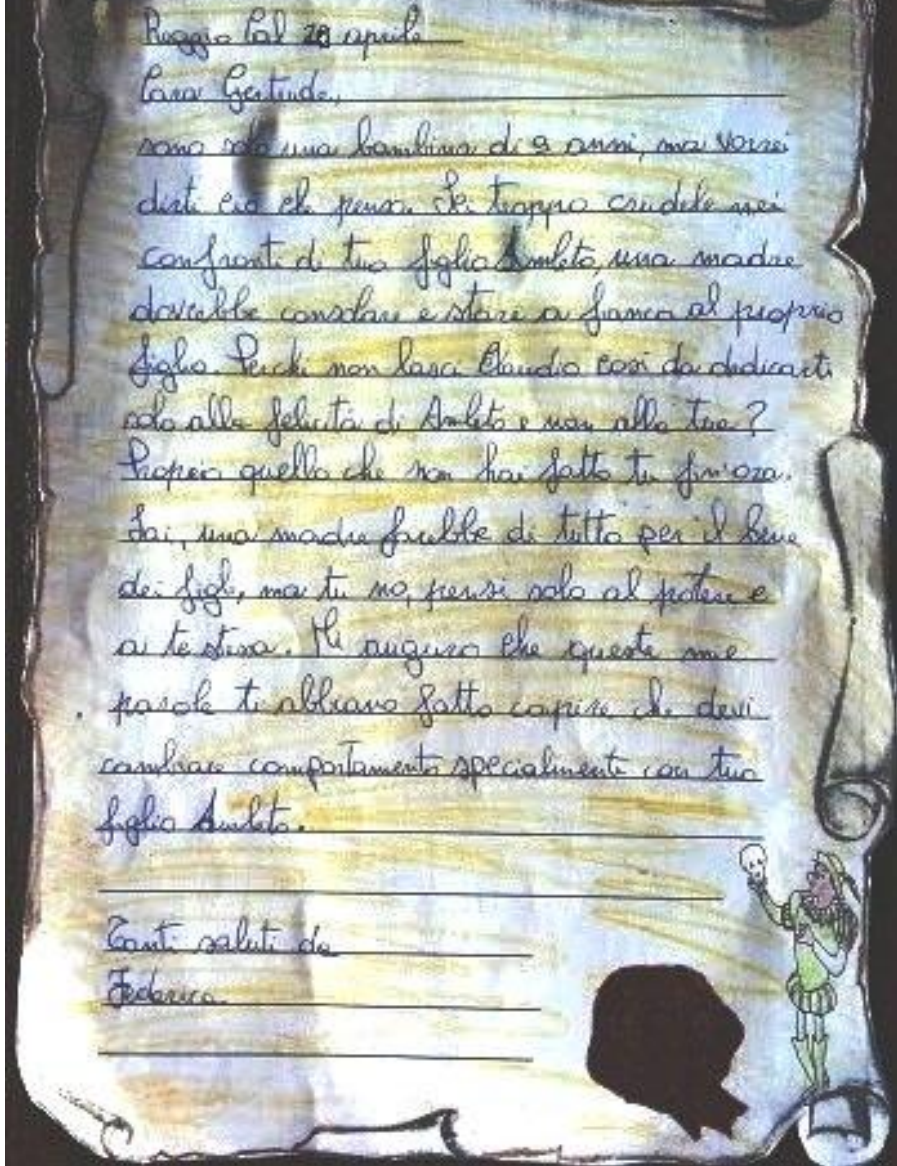 Reggio Cal 28 aprile
Cara Gertrude,
sono solo una bambina di 9 anni, ma vorrei
dirti ciò che penso. Sei troppo crudele nei
confronti di tuo figlio Amleto, una madre
dovrebbe consolare e stare a fianco al proprio
figlio. Perché non lasci Claudio così da dedicarti
solo alla felicità di Amleto e non alla tua?
Proprio quello che non hai fatto tu fin'ora.
Sai, una madre farebbe di tutto per il bene
dei figli, ma tu no, pensi solo al potere e
a te stessa. Mi auguro che queste mie
parole ti abbiano fatto capire che devi
cambiare comportamento specialmente con tuo
figlio Amleto.
Tanti saluti da
Federica